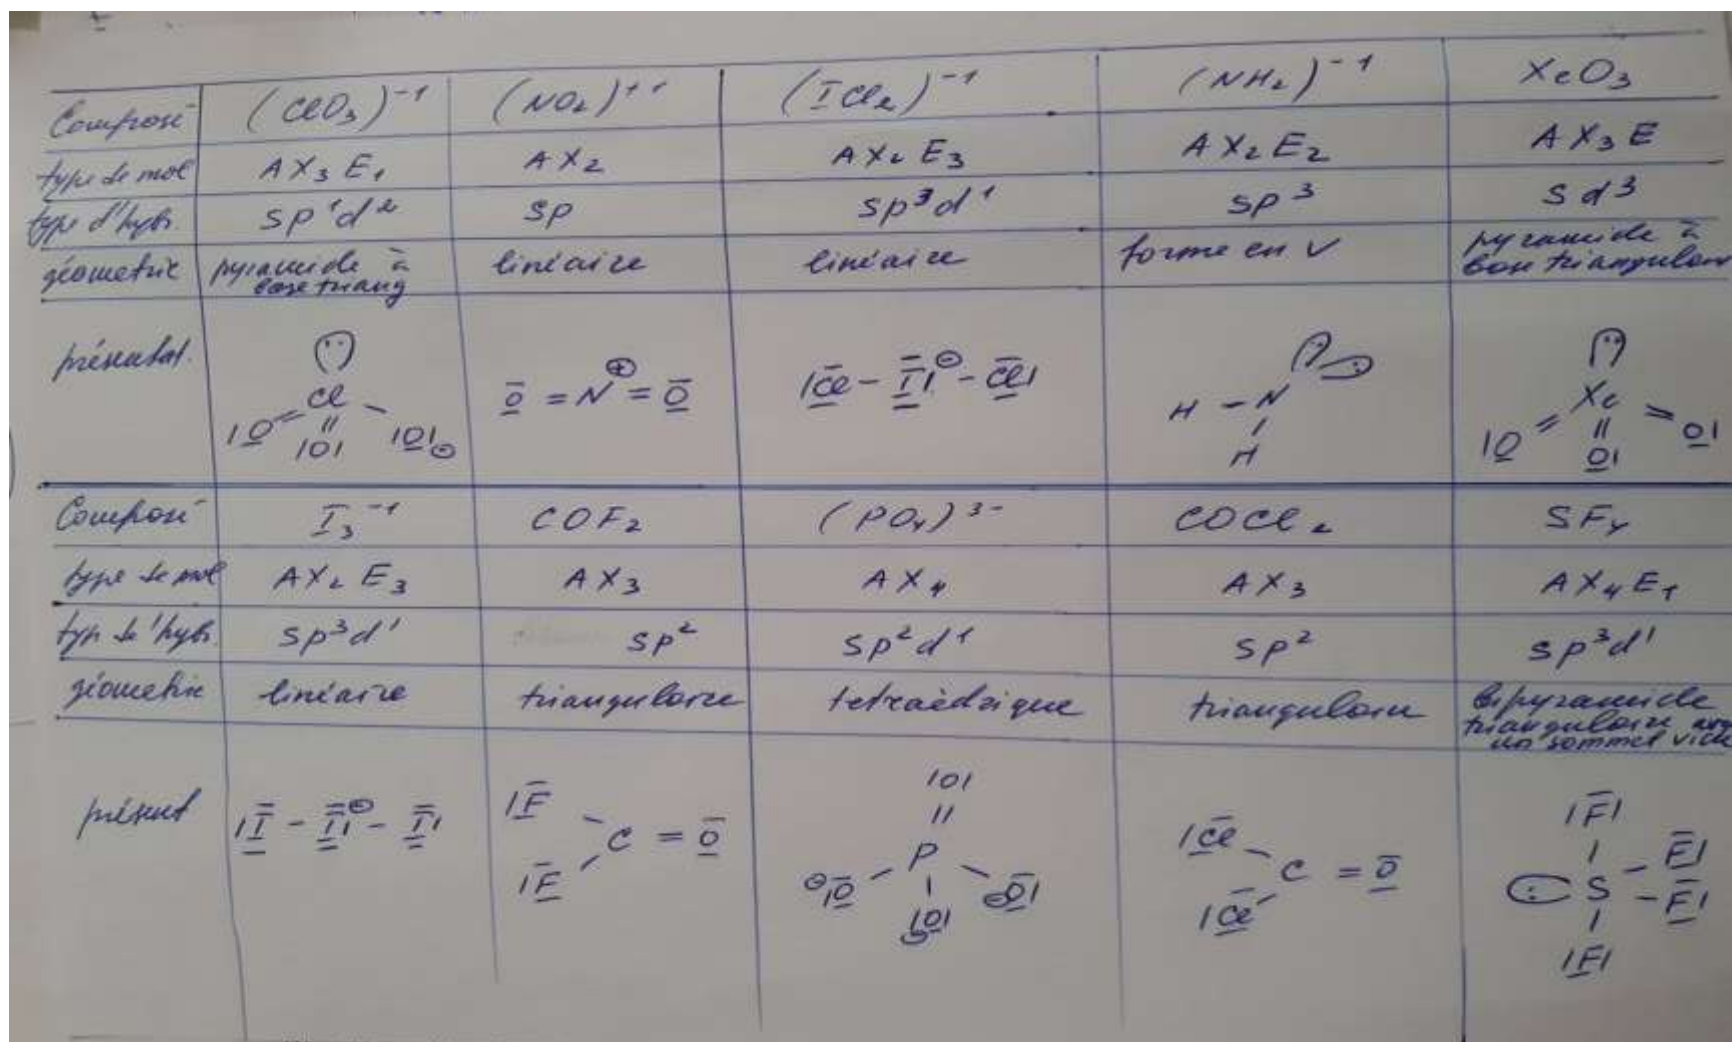 Composé (ClO₃)⁻¹ (NO₂)⁺¹ (ICl₂)⁻¹ (NH₂)⁻¹ XeO₃
type de mol AX₃E₁ AX₂ AX₂E₃ AX₂E₂ AX₃E
type d'hybr. sp¹d² sp sp³d¹ sp³ sd³
géometrie pyramide à base triang linéaire linéaire forme en V pyramide à base triangulaire
présentat.
Cl
|O = || |O| ⊖
|O|
O = N⊕ = O
|Cl - I|⊖ - Cl|
H - N
H
Xe
|O = || = O|
O|
Composé I₃⁻¹ COF₂ (PO₄)³⁻ COCl₂ SF₄
type de mol AX₂E₃ AX₃ AX₄ AX₃ AX₄E₁
typ de l'hybr. sp³d¹ sp² sp²d¹ sp² sp³d¹
géometrie linéaire triangulaire tetraèdrique triangulaire bipyramide triangulaire avec un sommet vide
présent
|I - I|⊖ - I|
|F
C = O
|F
|O|
||
P
⊖|O O|⊖
|O|
|Cl
C = O
|Cl
|F|
S - F|
- F|
|F|